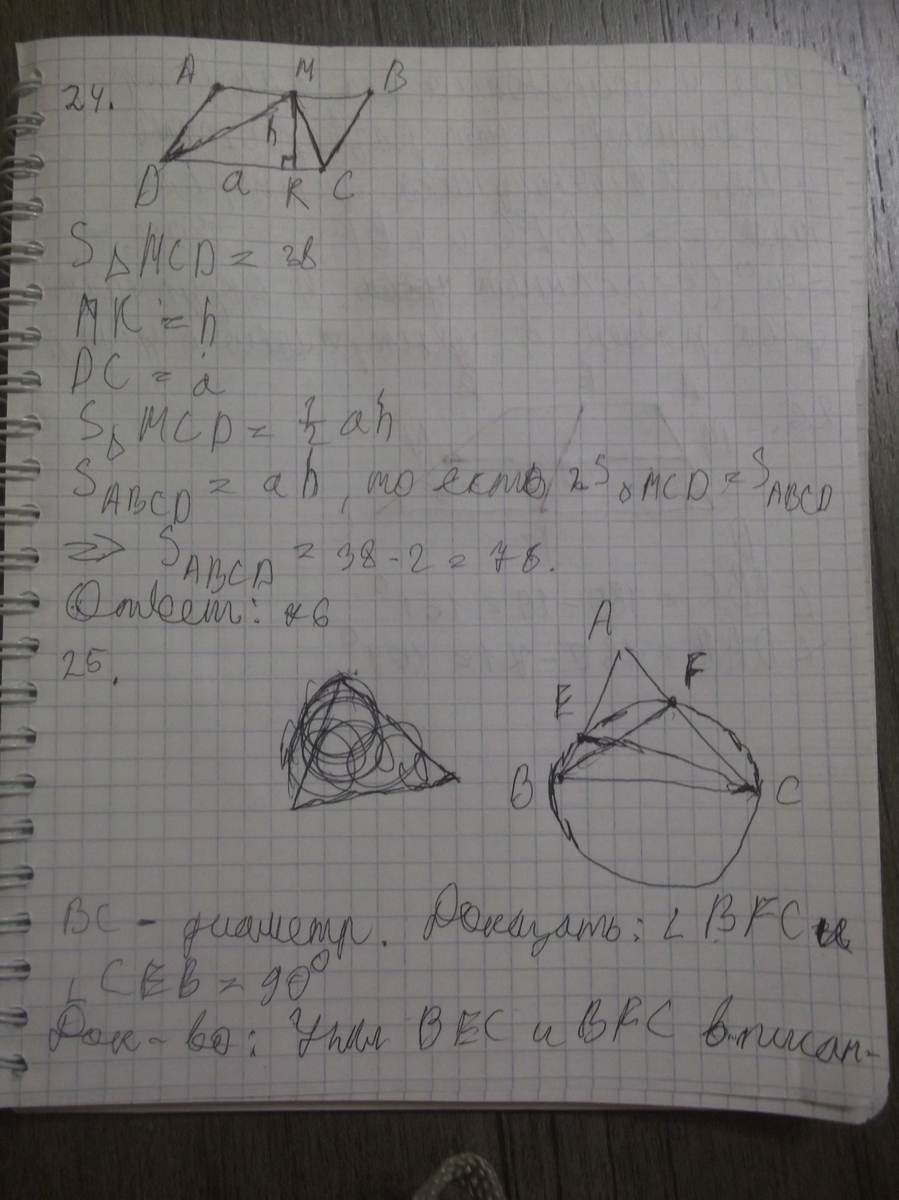 24.
A M B
h
D a K C
S△MCD = 38
MK = h
DC = a
S△MCD = ½ ah
SABCD = ah, то есть, 2S△MCD = SABCD
=> SABCD = 38·2 = 76.
Ответ: 76
25.
A
E F
B C
BC - диаметр. Доказать: ∠BFC и
∠CEB = 90°
Док-во: Углы BEC и BFC вписан-